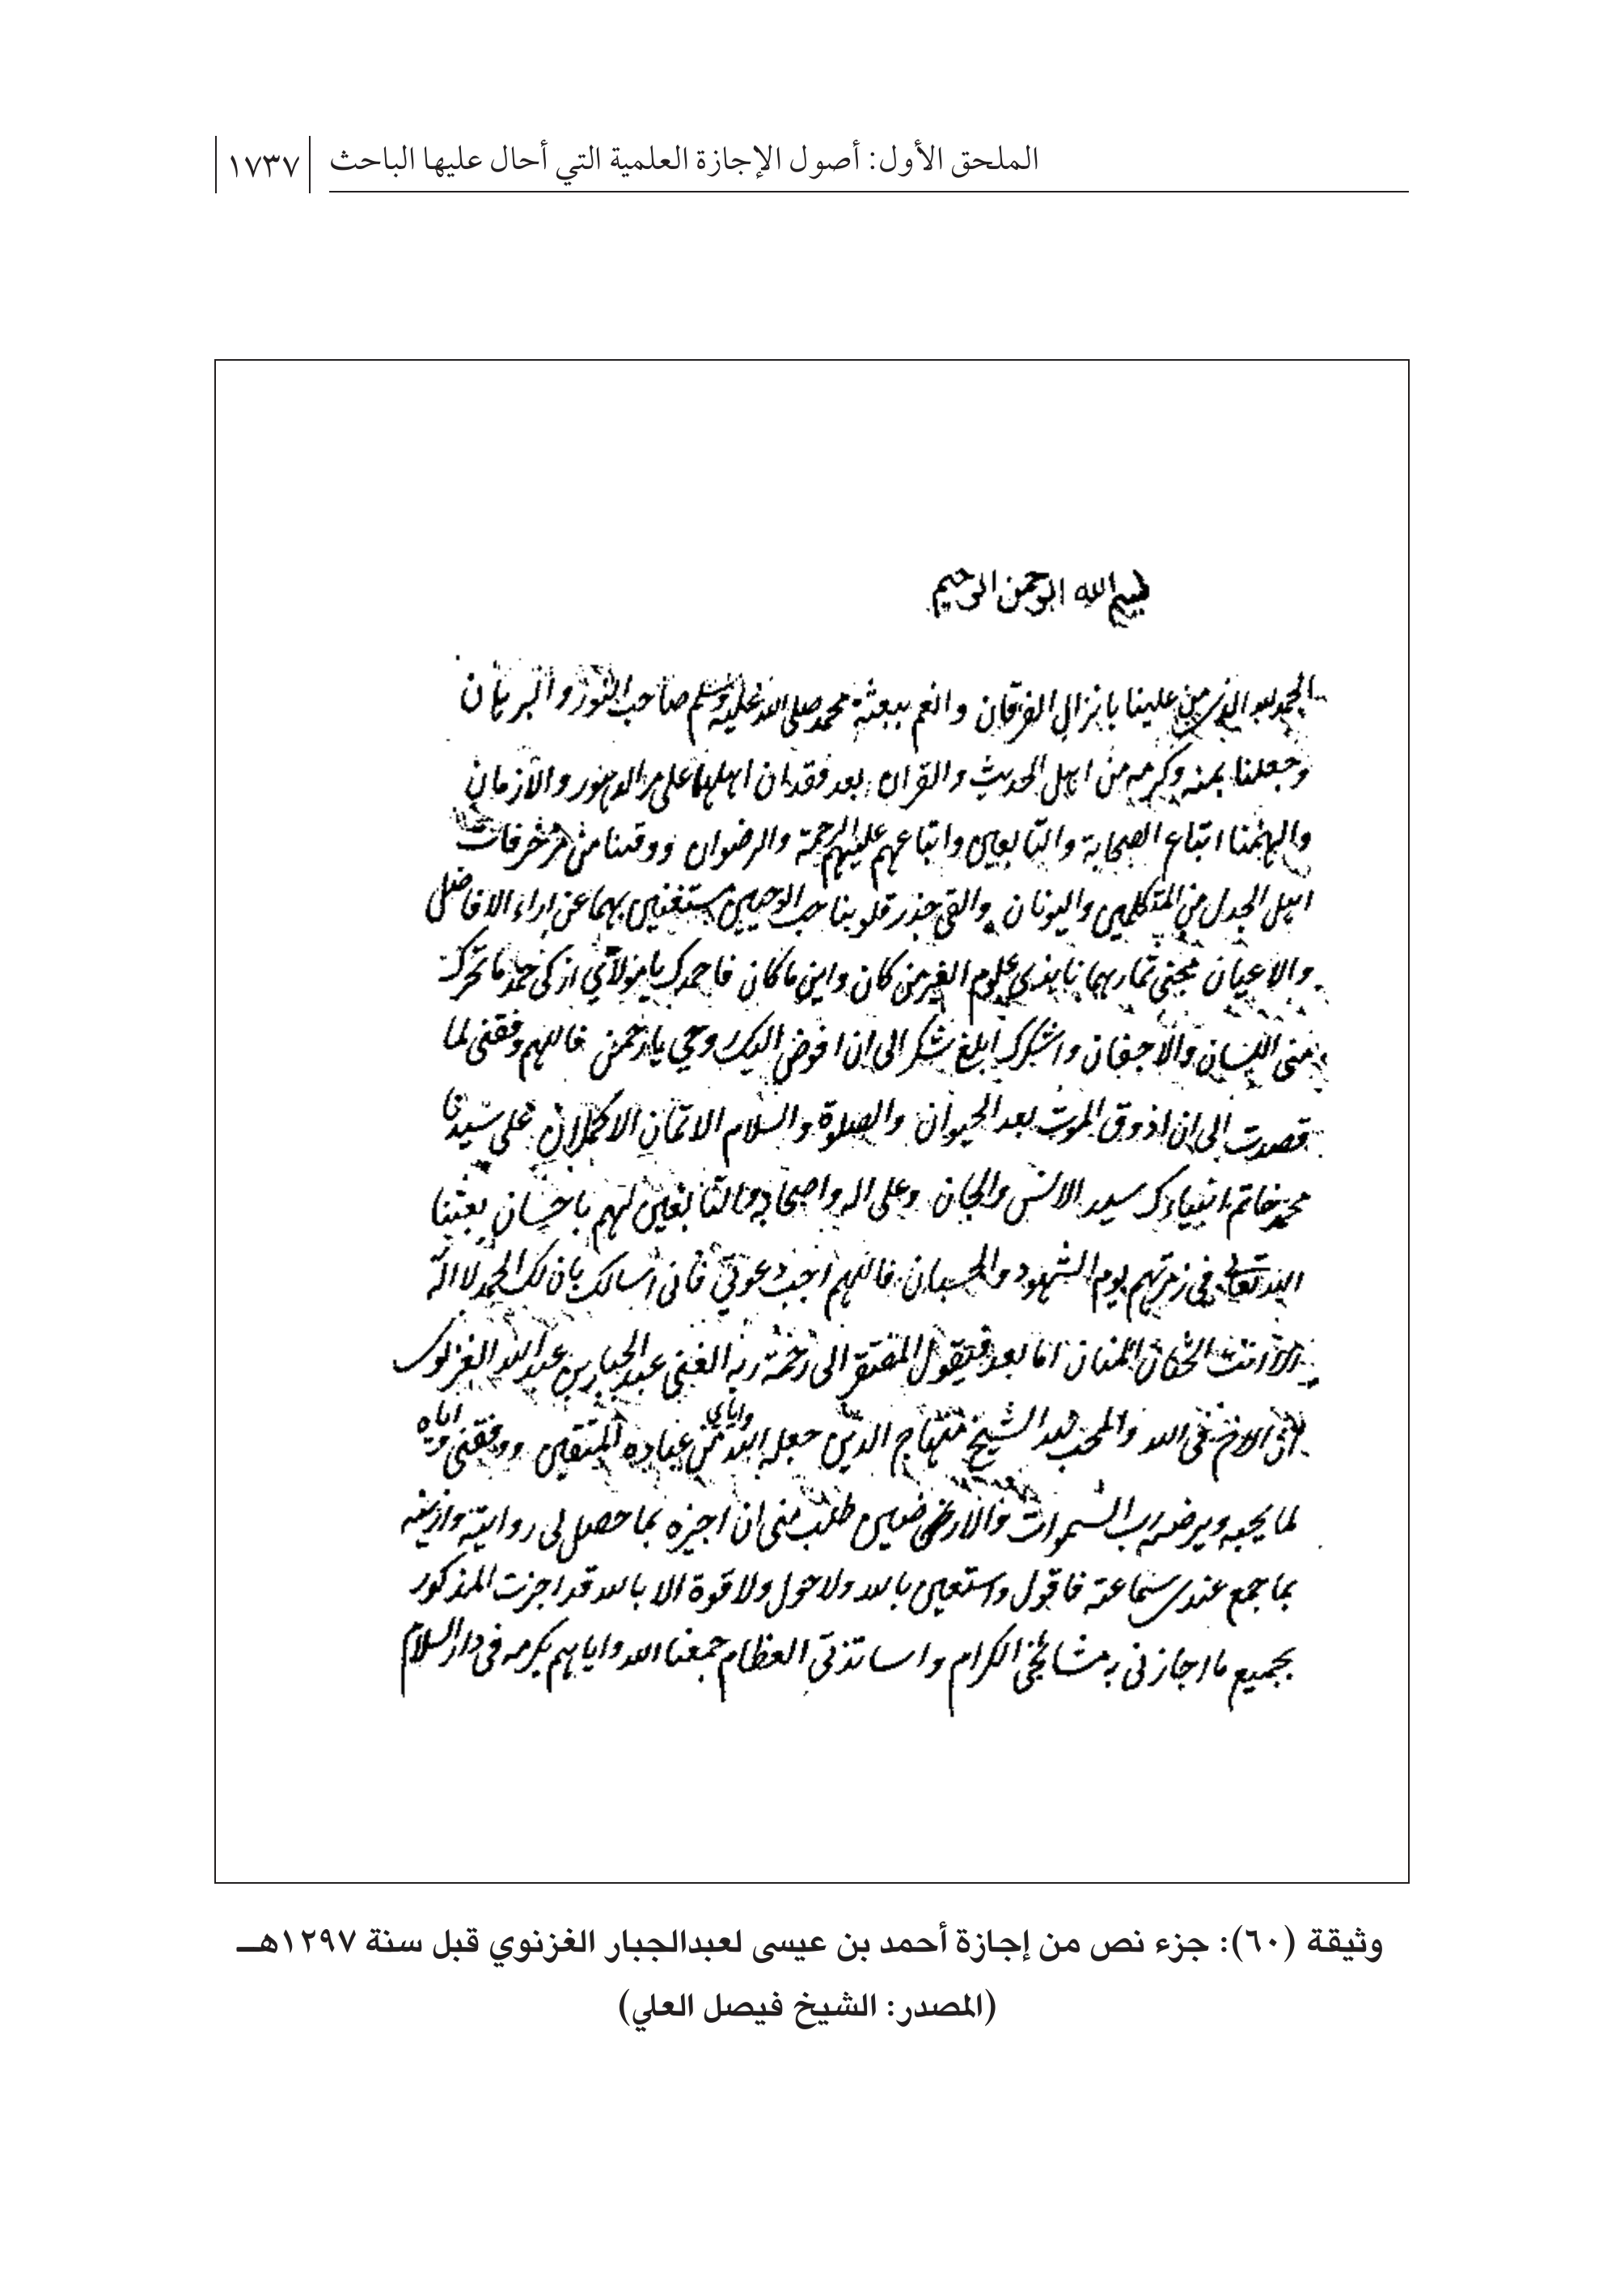 الملحق الأول: أصول الإجازة العلمية التي أحال عليها الباحث ١٧٣٧
بسم الله الرحمن الرحيم
الحمد لله الذي من علينا بانزال الفرقان وانعم ببعثة محمد صلى الله عليه وسلم صاحب النور والبرهان
وجعلنا بمنه وكرمه من اهل الحديث والقران بعد فقدان اهلهما على مر الدهور والازمان
والهمنا اتباع الصحابة والتابعين واتباعهم عليهم الرحمة والرضوان ووقينا من مزخرفات
اهل الجدل من المتكلمين واليونان والقى جذر قلوبنا حب الوحيين مستغنين بهما عن اراء الافاضل
والاعيان مجنى ثمارهما نابذى علوم الغير من كان واين ما كان فاحمدك يا مولائي ازكى حمد ما تحركت
منى اللسان والاجفان واشكرك ابلغ شكر الى ان افوض اليك روحي يا رحمن فاللهم وفقنى لما
قصدت الى ان اذوق الموت بعد الحيوان والصلوة والسلام الاتمان الاكملان على سيدنا
محمد خاتم انبياءك سيد الانس والجان وعلى اله واصحابه والتابعين لهم باحسان بعثنا
الله تعالى في زمرتهم يوم الشهود والحسبان فاللهم اجب دعوتي فانى اسالك بان لك الحمد لا اله
الا انت الحنان المنان اما بعد فيقول المفتقر الى رحمة ربه الغنى عبد الجبار بن عبد الله الغزنوى
ان الاخ في الله والمحب لله الشيخ منهاج الدين جعله الله واياي من عباده المتقين ووفقنى واياه
لما يحبه ويرضه رب السموات والارضين طلب منى ان اجيزه بما حصل لى روايته وازينه
بما جمع عندى سماعته فاقول واستعين بالله ولا حول ولا قوة الا بالله قد اجزت المذكور
بجميع ما اجازنى به مشائخى الكرام واساتذتي العظام جمعنا الله واياهم بكرمه في دار السلام
وثيقة (٦٠): جزء نص من إجازة أحمد بن عيسى لعبدالجبار الغزنوي قبل سنة ١٢٩٧هــ
(المصدر: الشيخ فيصل العلي)